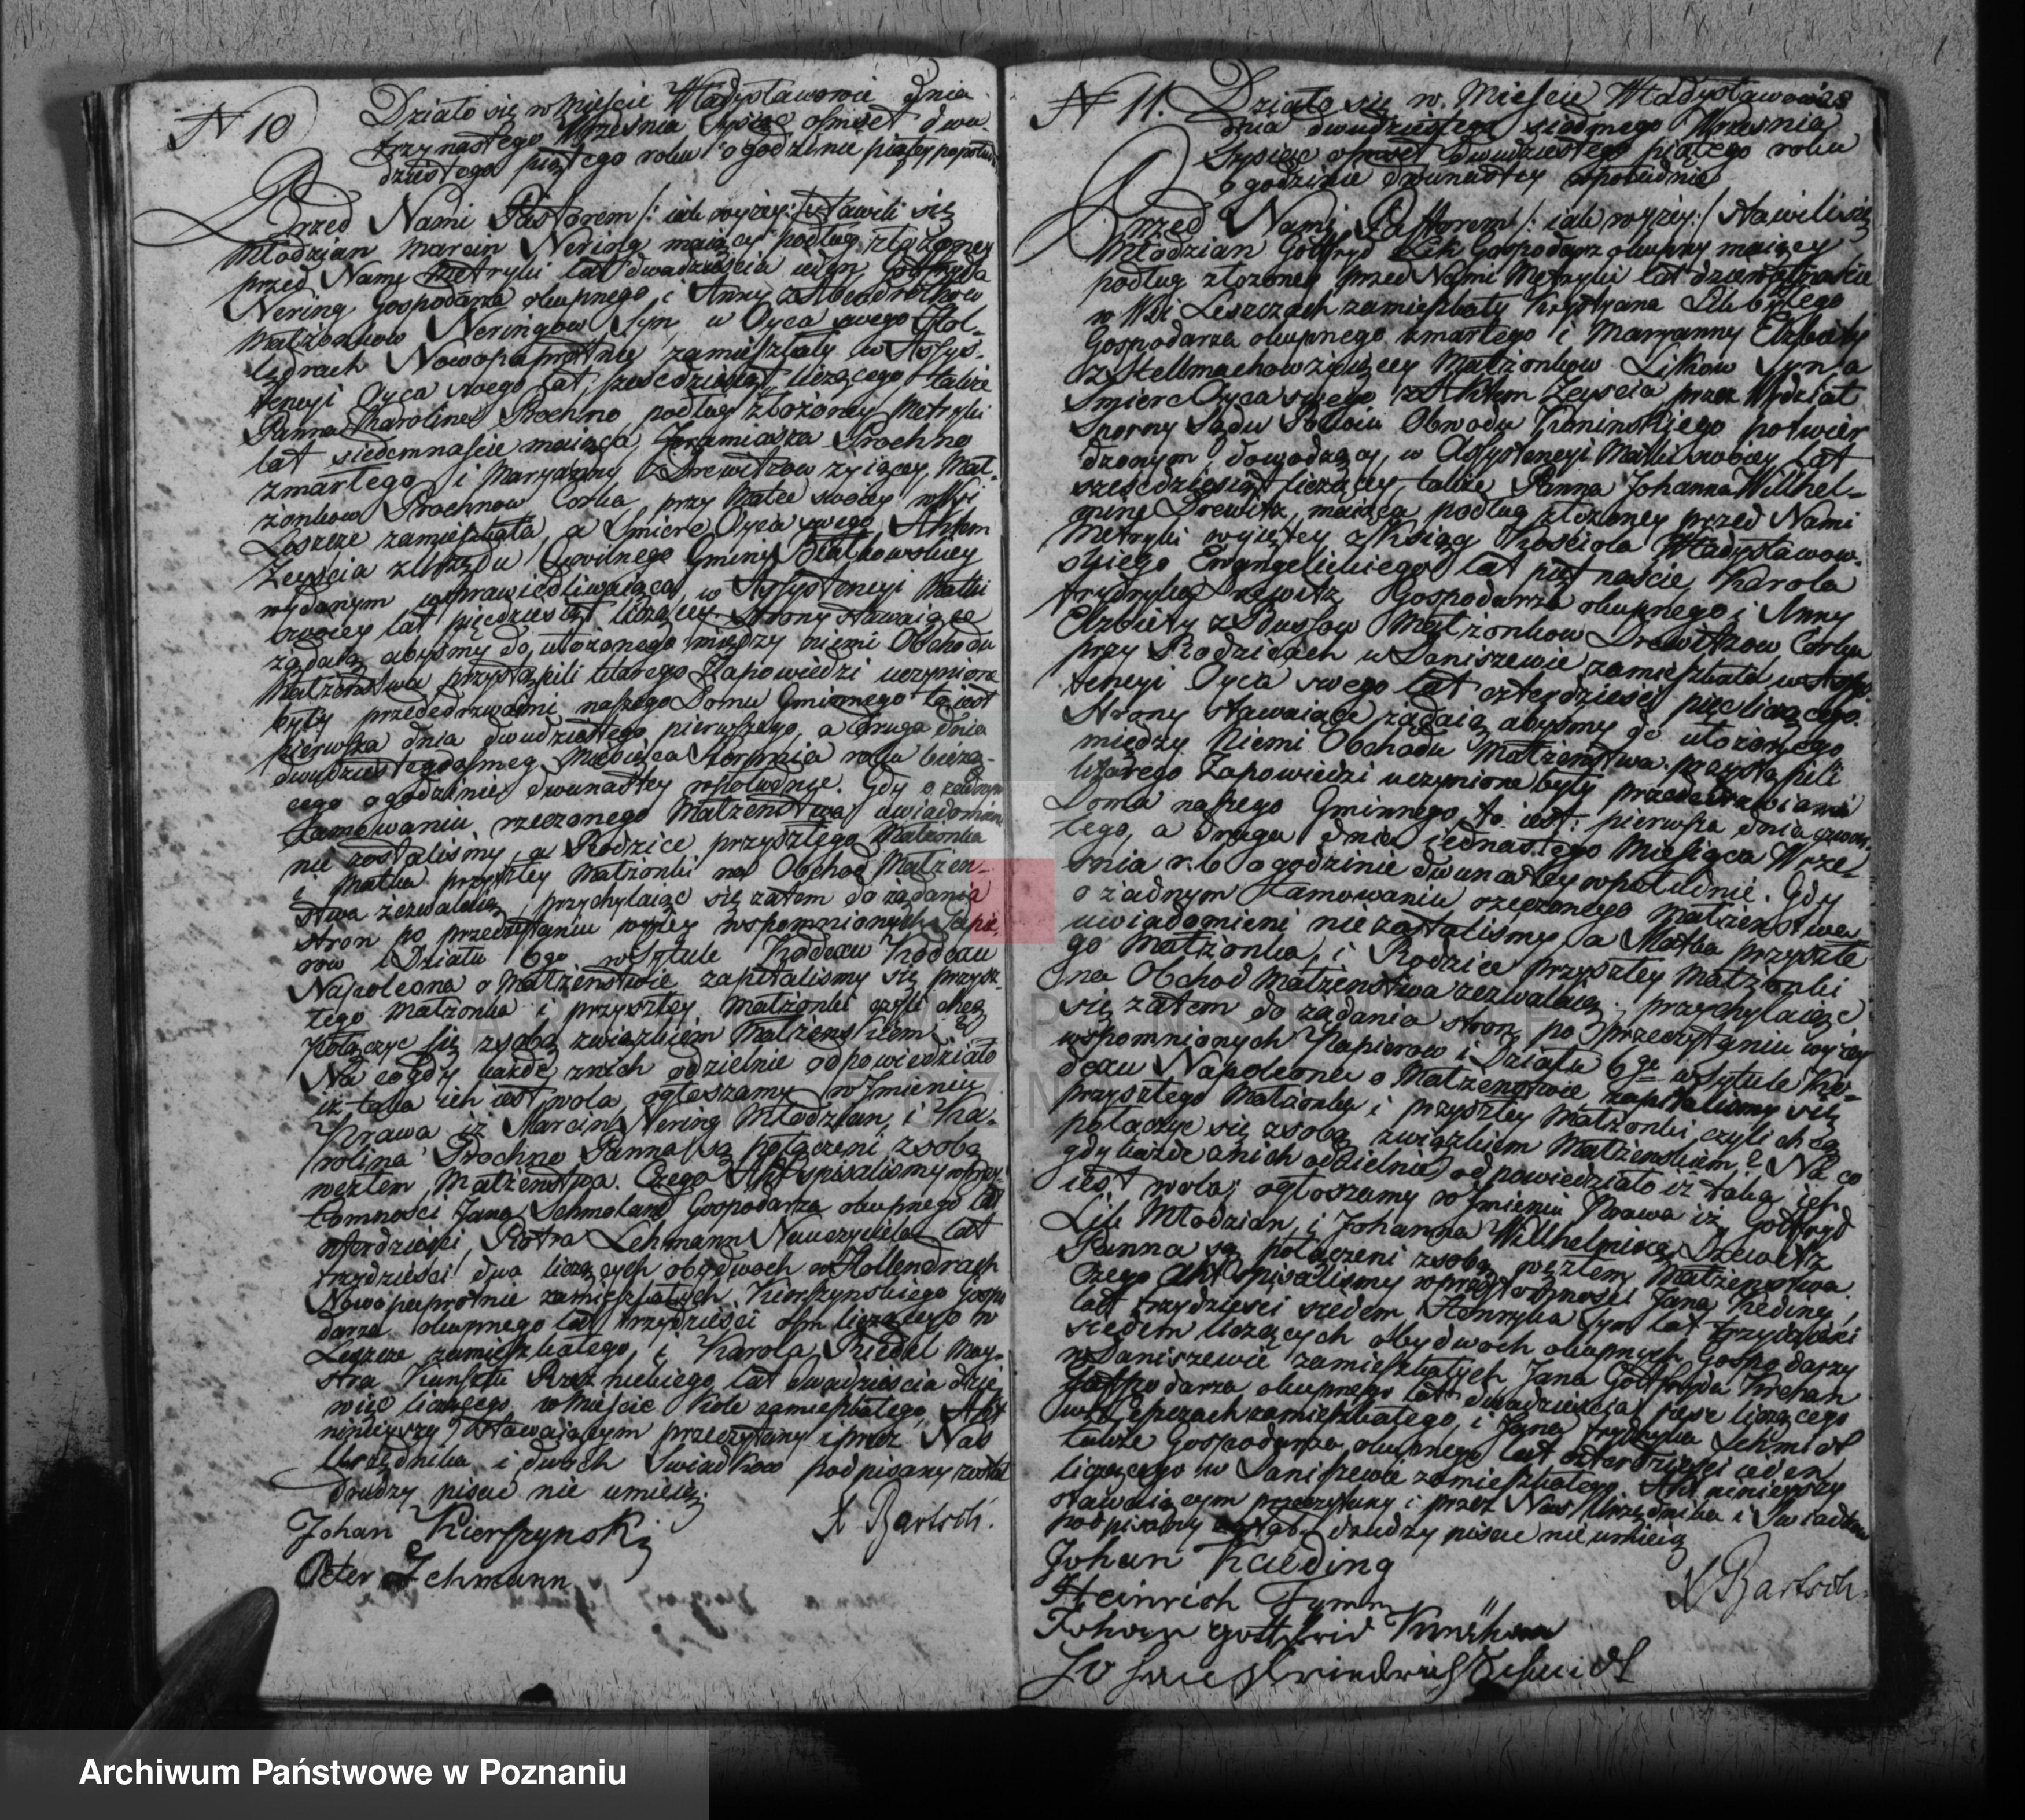 N 10
Działo się w Mieście Władysławowie dnia
trzynastego Września Tysiąc ośmset dwu-
dziestego piątego roku o godzinie piątey popołud:
Przed Nami Pastorem /: iak wyżey:/ stawili się
Młodzian Marcin Nering maiący podług złożoney
przed Namy Metryki lat dwadzieścia ieden, Gottfryda
Nering Gospodarza okupnego i Anny z
Małżonkow Neringow Syn w Oyca swego Hol-
lędrach Nowopaprotnie zamieszkały w Assys-
tencyi Oyca swego lat sześćdziesiąt liczącego także
Panna Karolina Prochno podług złożoney Metryki
lat siedemnaście maiąca, Jeremiasza Prochno
zmarłego i Maryanny z Drewitzow żyiącey, Mał-
żonkow Prochnow Corka, przy Matce swoiey w Wsi
Leszcze zamieszkała, a Śmierć Oyca swego Aktem
Zeyścia z Urzędu Cywilnego Gminy Białkowskiey
wydanym usprawiedliwiaiąca, w Assystencyi Matki
swoiey lat pięćdziesiąt liczącey Strony stawaiące
żądaią abyśmy do ułożonego między niemi Obchodu
Małżeństwa przystąpili którego Zapowiedzi uczynione
były przededrzwiami naszego Domu Gminnego to iest
pierwsza dnia dwudziestego pierwszego, a druga dnia
dwudziestegoósmego Miesiąca Sierpnia roku bieżą-
cego o godzinie dwunastey wpołudnie. Gdy o żadnym
tamowaniu rzeczonego Małżeństwa uwiadomien:
nie zostaliśmy, a Rodzice przyszłego Małżonka
i Matka przyszłey Małżonki na Obchod Małżeń-
stwa zezwalaią, przychylaiąc się zatem do żądania
stron po przeczytaniu wyżey wspomnionych Papie-
row i Działu 6go w Tytule Koddexu Koddexu
Napoleona o Małżeństwie zapytaliśmy się przysz-
łego Małżonka i przyszłey Małżonki czyli chcą
połączyc się z sobą związkiem Małżeńskiem?
Na co gdy każde z nich oddzielnie odpowiedziało
iż taka ich iest wola, ogłaszamy w Imieniu
Prawa iż Marcin Nering Młodzian, i Ka-
rolina Prochno Panna są połączeni z sobą
węzłem Małżeństwa. Czego Akt spisaliśmy w przy-
tomności Jana Schmoland Gospodarza okupnego lat
czterdzieści, Piotra Lehmann Nauczyciela lat
trzydzieści dwa liczących obydwoch w Hollendrach
Nowopaprotnie zamieszkałych, Kierszynskiego Gospo
darza okupnego lat trzydzieści ośm liczącego w
Leszcze zamieszkałego, i Karola Riedel May-
stra Kunsztu Rzeźnickiego lat dwadzieścia dzie
więc liczącego, w Mieście Kole zamieszkałego, Akt
ninieyszy Stawaiącym przeczytany i przez Nas
Urzędnika i dwoch Swiadkow podpisany został
drudzy pisac nie umieią.
Johan Kierszynski
X Bartsch.
Peter Lehmann
N 11. Działo się w Mieście Władysławowie
dnia dwudziestego siodmego Września
Tysiąc ośmset dwudziestego piątego roku
o godzinie dwunastey wpołudnie
Przed Nami Pastorem /: iak wyżey:/ stawili się
Młodzian Gottfryd Lik Gospodarz okupny maiący
podług złożoney przed Nami Metryki lat dziewiętnaście
w Wsi Leszczach zamieszkały Krystyana Lik byłego
Gospodarza okupnego zmarłego i Maryanny Elżbiety
z Stellmachow żyiącey Małżonkow Likow Syn, a
Smierc Oyca swego z Aktem Zeyscia przez Wydział
Sporny Sądu Pokoiu Obwodu Konińskiego potwier
dzonym dowodzący, w Assystencyi Matki swoiey lat
sześćdziesiąt liczącey, także Panna Johanna Willhel-
mina Drewitz, maiąca podług złożoney przed Nami
Metryki wyiętey z Xiąg Kościoła Władysławow-
skiego Ewangelickiego lat piętnaście, Karola
Frydryka Drewitz Gospodarza okupnego i Anny
Elżbiety z Małżonkow Drewitzow Corka
przy Rodzicach w Daniszewie zamieszkała w Assys
tencyi Oyca swego lat czterdzieści pięc liczącego.
Strony stawaiące żądaią abyśmy do ułożonego
między Niemi Obchodu Małżeństwa przystąpili
którego Zapowiedzi uczynione były przededrzwiami
Domu naszego Gminnego, to iest: pierwsza dnia czwar-
tego, a druga dnia iednastego Miesiąca Wrze-
śnia r. b. o godzinie dwunastey wpołudnie. Gdy
o żadnym tamowaniu rzeczonego Małżeństwa
uwiadomieni nie zostaliśmy, a Matka przyszłe
go Małżonka, i Rodzice przyszłey Małżonki
na Obchod Małżeństwa zezwalaią, przychylaiąc
się zatem do żądania stron, po przeczytaniu wyżey
wspomnionych Papierow i Działu 6go w Tytule Ko-
dexu Napoleona o Małżeństwie, zapytaliśmy się
przyszłego Małżonka i przyszłey Małżonki, czyli chcą
połączyc się z sobą związkiem Małżenskiem? Na co
gdy każde z nich oddzielnie odpowiedziało iż taka ich
iest wola; ogłaszamy w Imieniu Prawa iż Gottfryd
Lik Młodzian, i Johanna Willhelmina Drewitz
Panna są połączeni z sobą węzłem Małżeństwa.
Czego Akt spisaliśmy w przytomności Jana Keding,
lat trzydzieści siedem, Henryka Tym lat trzydzieści
siedem liczących obydwoch okupnych Gospodarzy
w Daniszewie zamieszkałych, Jana Gottfryda Krehan
Gospodarza okupnego lat dwadzieścia liczącego
w Leszczach zamieszkałego, i Jana Frydryka Schmidt
także Gospodarza okupnego lat czterdzieści ieden
liczącego w Daniszewie zamieszkałego. Akt ninieyszy
stawaiącym przeczytany i przez Nas Urzędnika i Swiadkow
podpisany drudzy pisac nie umieią
Johan Kaeding
X Bartsch.
Heinrich Tymm
Johan gottfried
Johann Friedrich Schmidt
Archiwum Państwowe w Poznaniu